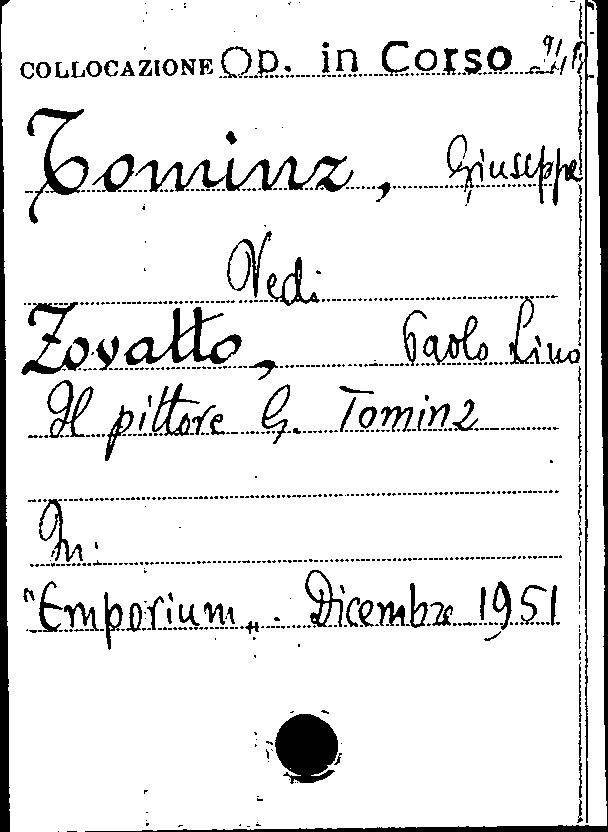 COLLOCAZIONE Op. in Corso
Tominz, Giuseppe
Vedi
Zovatto, Paolo Lino
Il pittore G. Tominz
In:
"Emporium„. Dicembre 1951